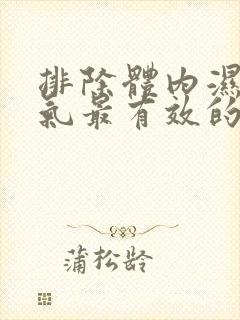 排除體內濕
氣最有效的
蒲松齡